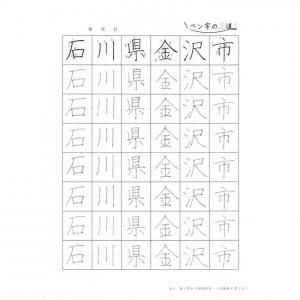 年 月 日
ペン字の
石 川 県 金 沢 市
石 川 県 金 沢 市
石 川 県 金 沢 市
石 川 県 金 沢 市
石 川 県 金 沢 市
石 川 県 金 沢 市
石 川 県 金 沢 市
石 川 県 金 沢 市